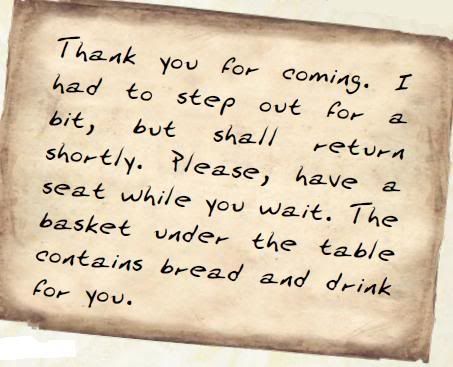 Thank you for coming. I
had to step out for a
bit, but shall return
shortly. Please, have a
seat while you wait. The
basket under the table
contains bread and drink
for you.